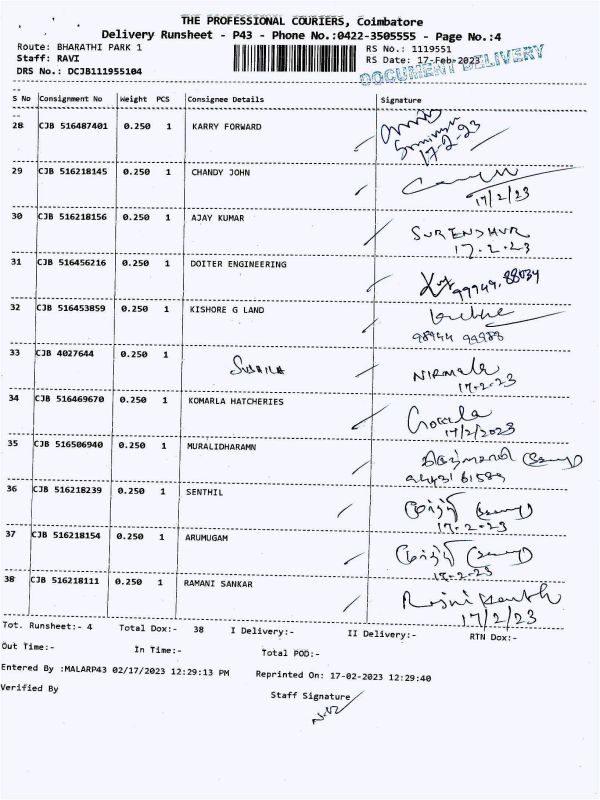 THE PROFESSIONAL COURIERS, Coimbatore
Delivery Runsheet - P43 - Phone No.:0422-3505555 - Page No.:4
Route: BHARATHI PARK 1 RS No.: 1119551
Staff: RAVI RS Date: 17-Feb-2023
DRS No.: DCJB111955104 DOCUMENT DELIVERY
S No Consignment No Weight PCS Consignee Details Signature
28 CJB 516487401 0.250 1 KARRY FORWARD
17-2-23
29 CJB 516218145 0.250 1 CHANDY JOHN
17/2/23
30 CJB 516218156 0.250 1 AJAY KUMAR SURENDHUR
17.2.23
31 CJB 516456216 0.250 1 DOITER ENGINEERING
99949.88034
32 CJB 516453859 0.250 1 KISHORE G LAND
98944 99983
33 CJB 4027644 0.250 1 SUSHILA NIRMALA
17-2-23
34 CJB 516469670 0.250 1 KOMARLA HATCHERIES
17/2/2023
35 CJB 516506940 0.250 1 MURALIDHARAMN
36 CJB 516218239 0.250 1 SENTHIL
17-2-23
37 CJB 516218154 0.250 1 ARUMUGAM
38 CJB 516218111 0.250 1 RAMANI SANKAR
17/2/23
Tot. Runsheet:- 4 Total Dox:- 38 I Delivery:- II Delivery:- RTN Dox:-
Out Time:- In Time:- Total POD:-
Entered By :MALARP43 02/17/2023 12:29:13 PM Reprinted On: 17-02-2023 12:29:40
Verified By Staff Signature